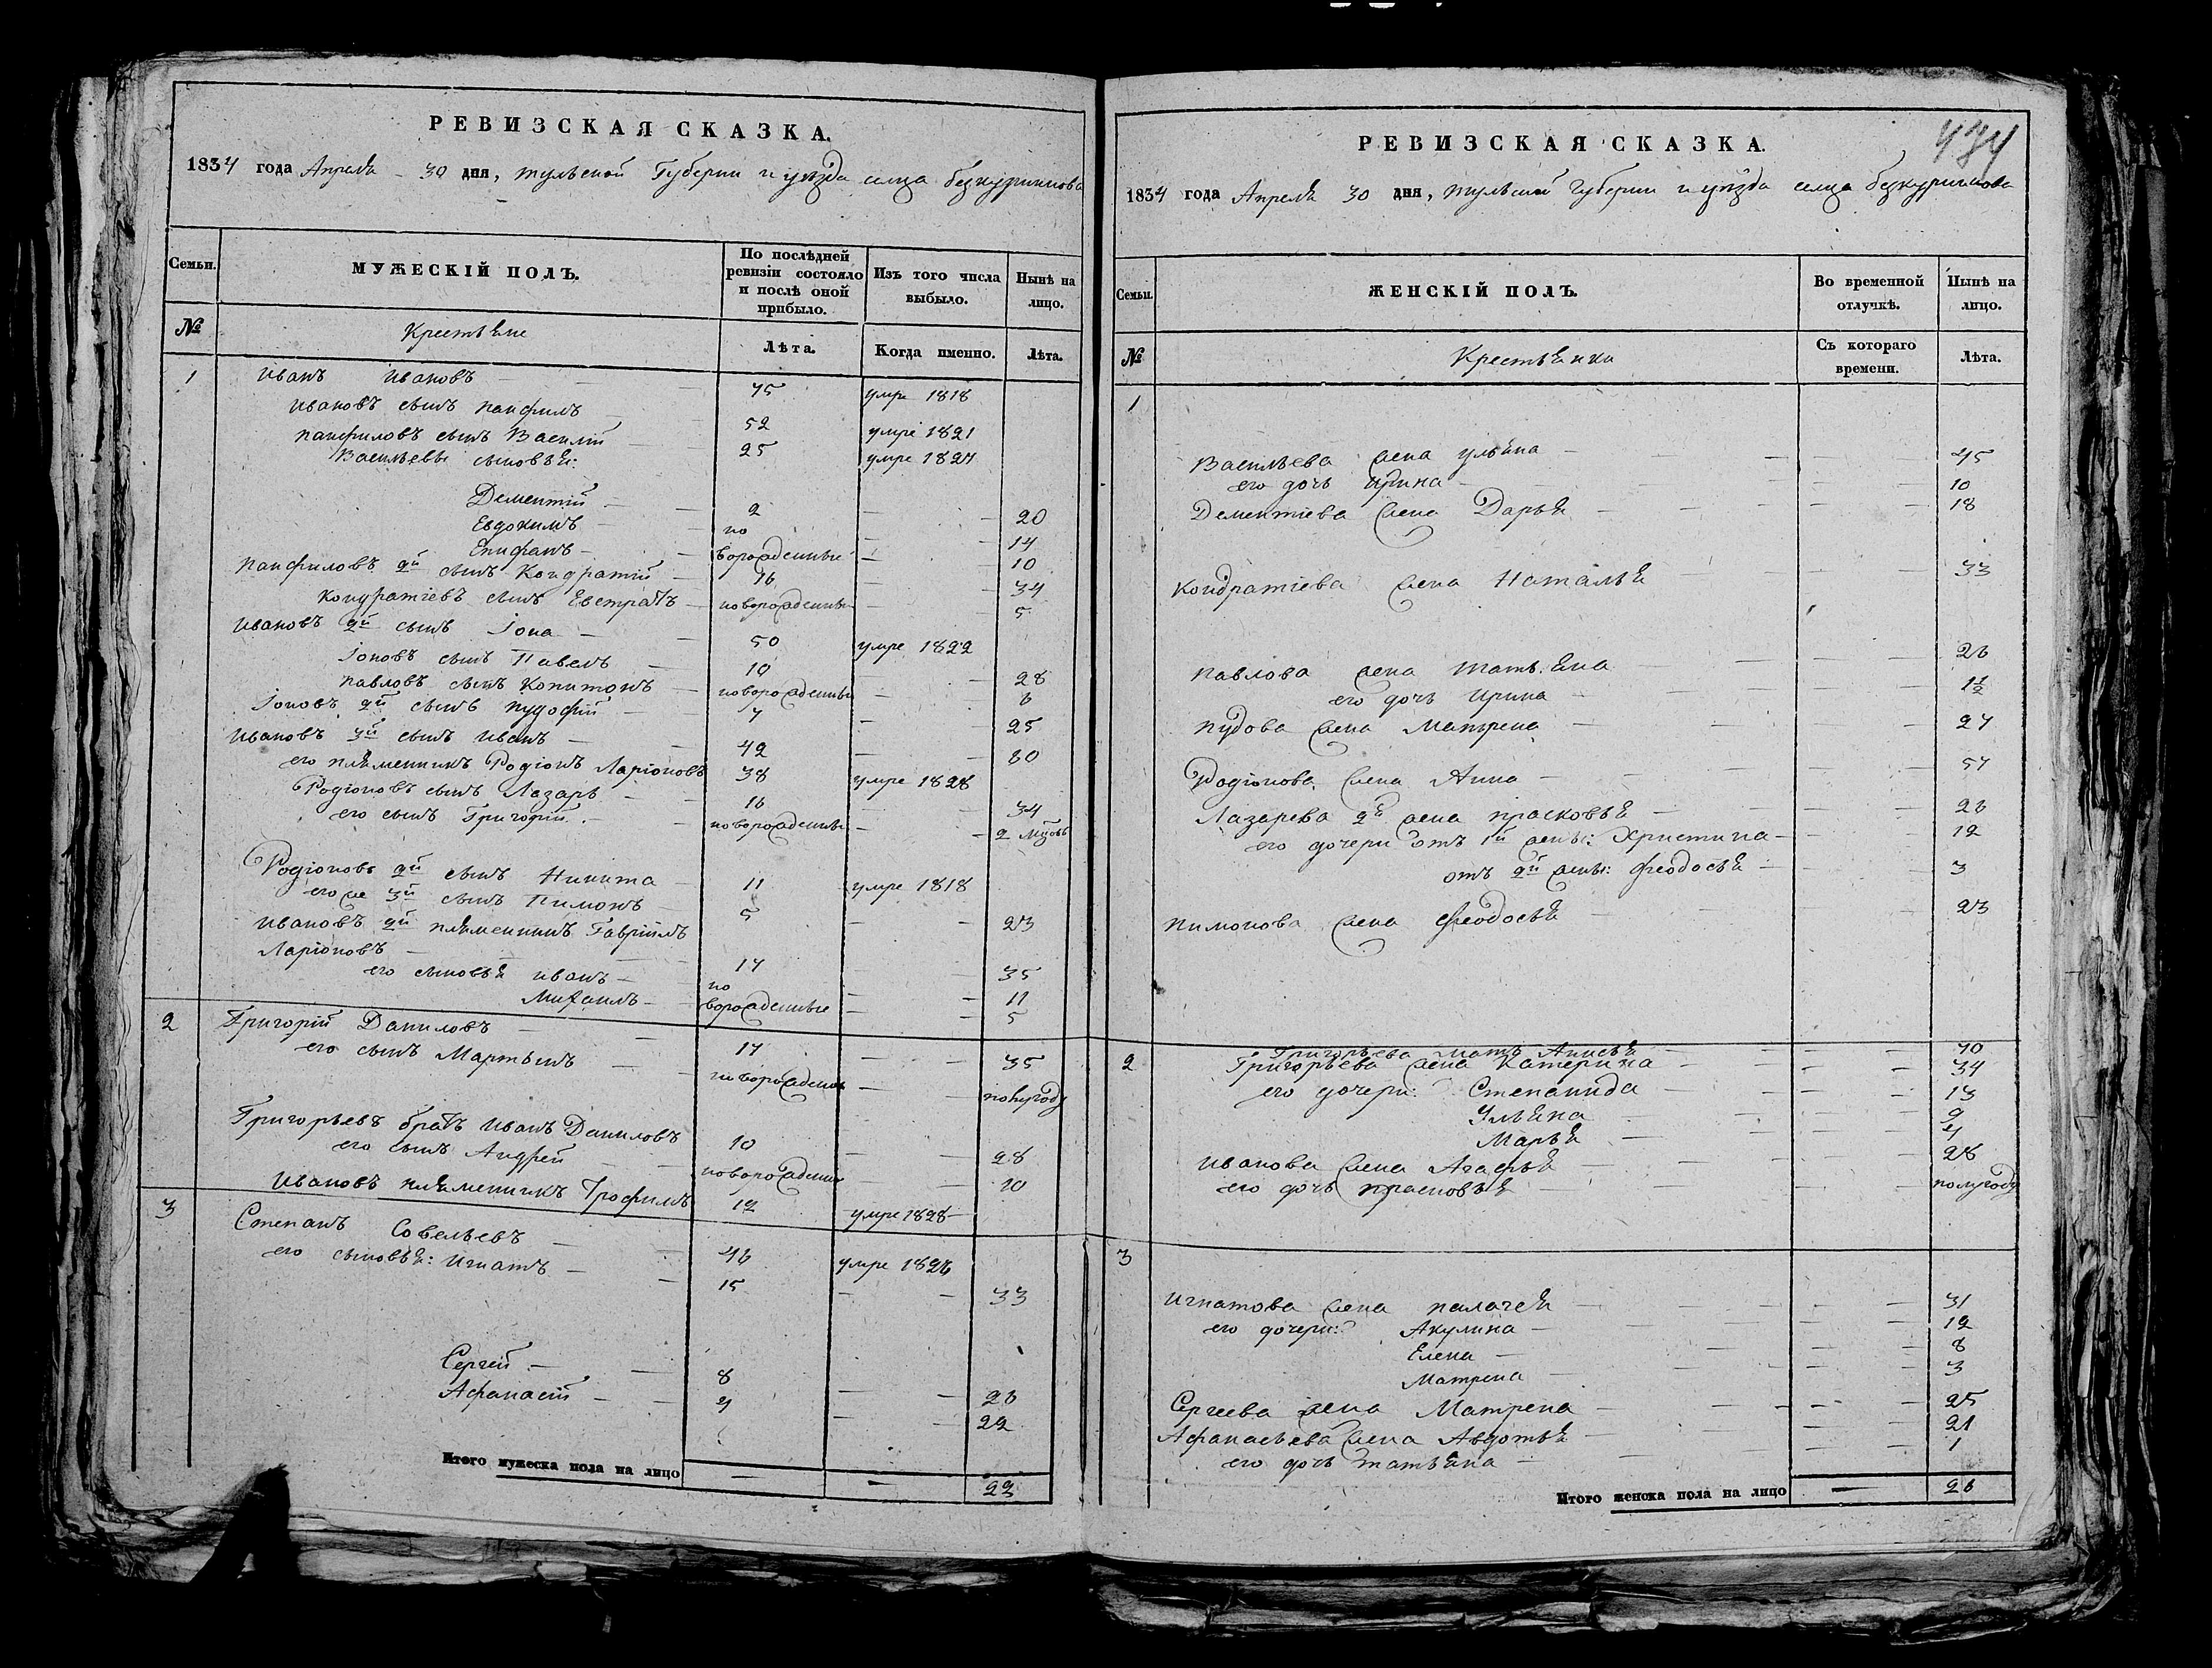 РЕВИЗСКАЯ СКАЗКА.
1834 года Апреля 30 дня, тульской Губернии и уезда сельца безкуринкова
Семьи. МУЖЕСКІЙ ПОЛЪ. По послѣдней ревизіи состояло и послѣ оной прибыло. Изъ того числа выбыло. Нынѣ на лицо.
№ Крестьяне Лѣта. Когда именно. Лѣта.
1 Иванъ Ивановъ — 75 умре 1818
Ивановъ сынъ панфилъ — 52 умре 1821
панфиловъ сынъ Василій — 25 умре 1824
Васильевы сыновья:
Дементій — 2 — 20
Евдокимъ — но — 14
Епифанъ — ворожденные — 10
панфиловъ 2й сынъ Кондратий — 16 — 34
Кондратіевъ сынъ Евстратъ — новорожденны — 5
Ивановъ 2й сынъ Іона — 50 умре 1822
Іоновъ сынъ Павелъ — 10 — 28
павловъ сынъ Копитонъ — новорожденны — 6
Іоновъ 2й сынъ пудофій — 7 — 25
Ивановъ 3й сынъ Иванъ — 42 — 60
его племянникъ Родіонъ Ларіоновъ 38 умре 1828
Родіоновъ сынъ Лазарь — 16 — 34
его сынъ Григорій — новорожденны — 2 Мцовъ
Родіоновъ 2й сынъ Никита — 11 умре 1818
его же 3й сынъ Пимонъ — 5 — 23
Ивановъ 2й племянникъ Гавріилъ
Ларіоновъ — 17 — 35
его сыновья иванъ — но — 11
Михаилъ — ворожденные — 5
2 Григорій Даниловъ — 17 — 35
его сынъ Мартынъ — новорожден — полугоду
Григорьевъ братъ Иванъ Даниловъ 10 — 28
его сынъ Андрей — новорожден — 10
Ивановъ племянникъ Трофимъ 12 умре 1828
3 Степанъ Совельевъ — 46 умре 1826
его сыновья: Игнатъ — 15 — 33
Сергей — 8 — 26
Афанасій — 4 — 22
Итого мужеска пола на лицо — — 23
434
РЕВИЗСКАЯ СКАЗКА.
1834 года Апреля 30 дня, тульской губернии и уезда сельца безкуринкова
Семьи. ЖЕНСКІЙ ПОЛЪ. Во временной отлучкѣ. Нынѣ на лицо.
№ Крестьянки Съ котораго времени. Лѣта.
1
Васильева жена ульяна — 45
его дочь Ирина — 10
Дементіева жена Дарья — 18
Кондратіева жена Наталья — 33
павлова жена татьяна — 26
его дочь Ирина — 1½
пудова жена Матрена — 24
Родіонова жена Анна — 54
Лазарева 2я жена прасковья — 26
его дочери отъ 1й жены: Христина — 12
отъ 2й жены: феодосья — 3
пимонова жена феодосья — 23
2 Григорьева мать Анисья — 70
Григорьева жена Катерина — 34
его дочери: Степанида — 13
Ульяна — 9
Марья — 4
Иванова жена Агафья — 28
его дочь прасковья — полугоду
3
Игнатова жена палагея — 31
его дочери: Акулина — 12
Елена — 8
Матрена — 3
Сергеева жена Матрена — 25
Афанасьева жена Авдотья — 21
его дочь татьяна — 1
Итого женска пола на лицо — 26